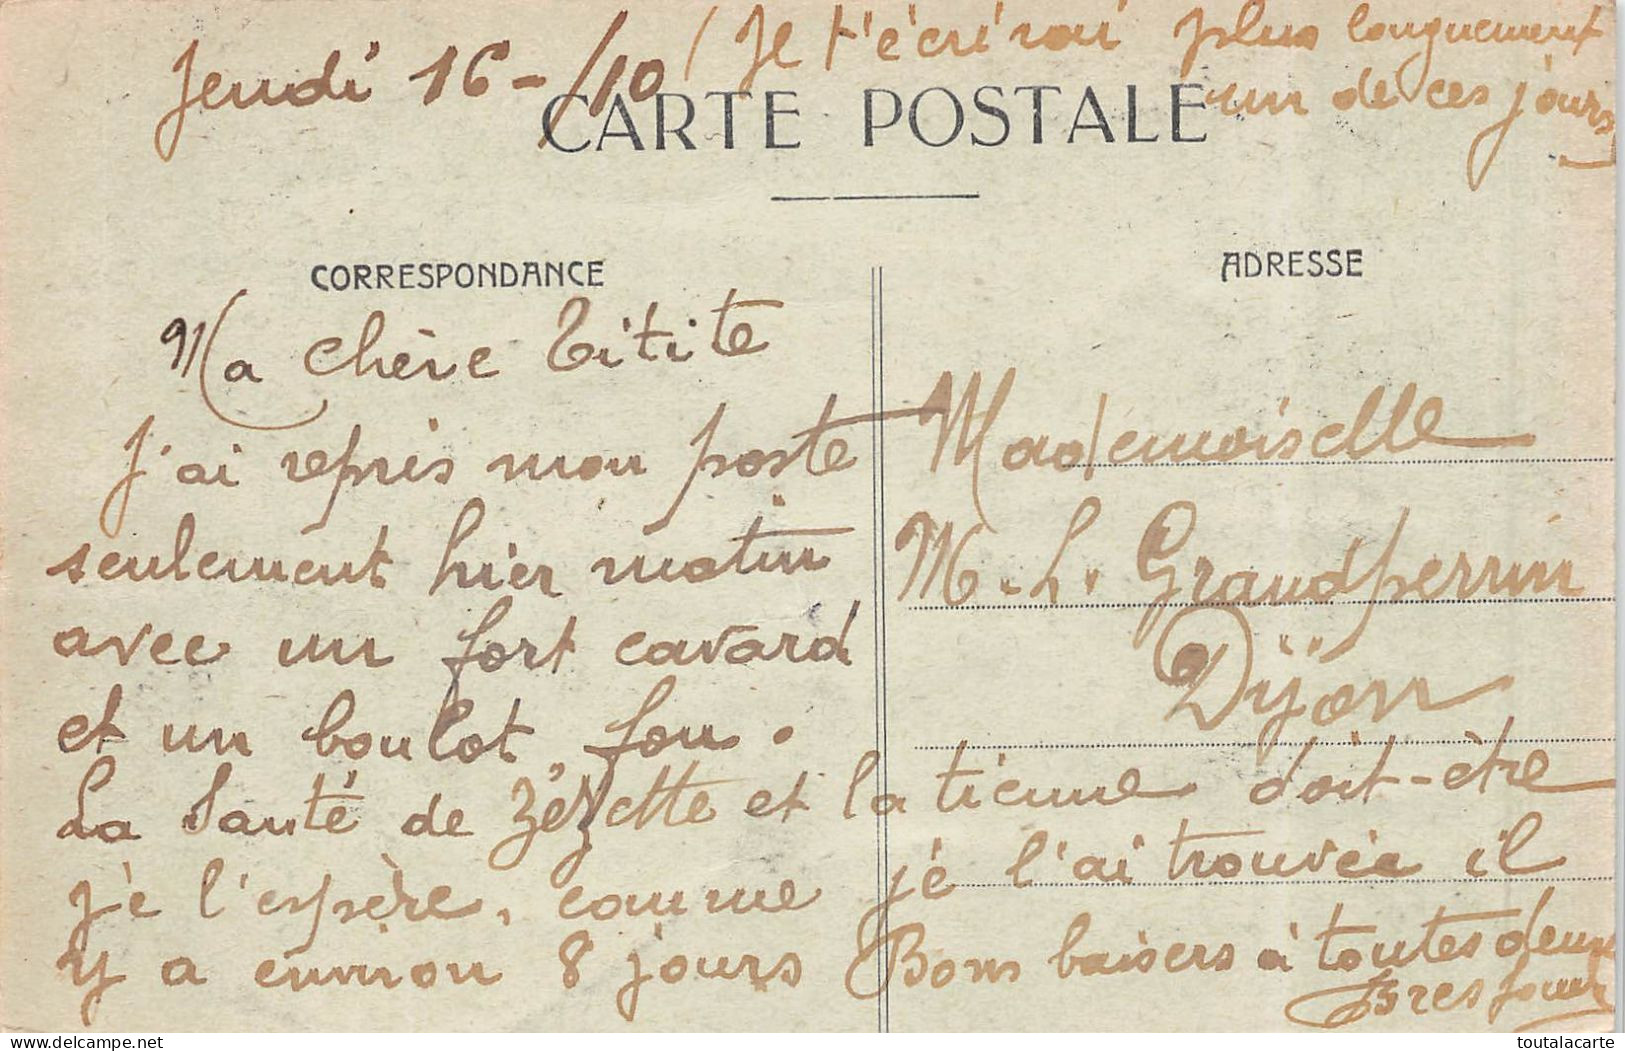 Jeudi 16-/10 / Je t'écrirai plus longuement
un de ces jours
CARTE POSTALE
CORRESPONDANCE
ADRESSE
Ma chère Titite
J'ai repris mon poste
seulement hier matin
avec un fort cavard
et un boulot fou.
La Santé de Zézette et la tienne doit-être
je l'espère, comme je l'ai trouvée il
y a environ 8 jours Bons baisers à toutes deux
Mademoiselle
M. L. Grandperrin
Dijon
delcampe.net
toutalacarte